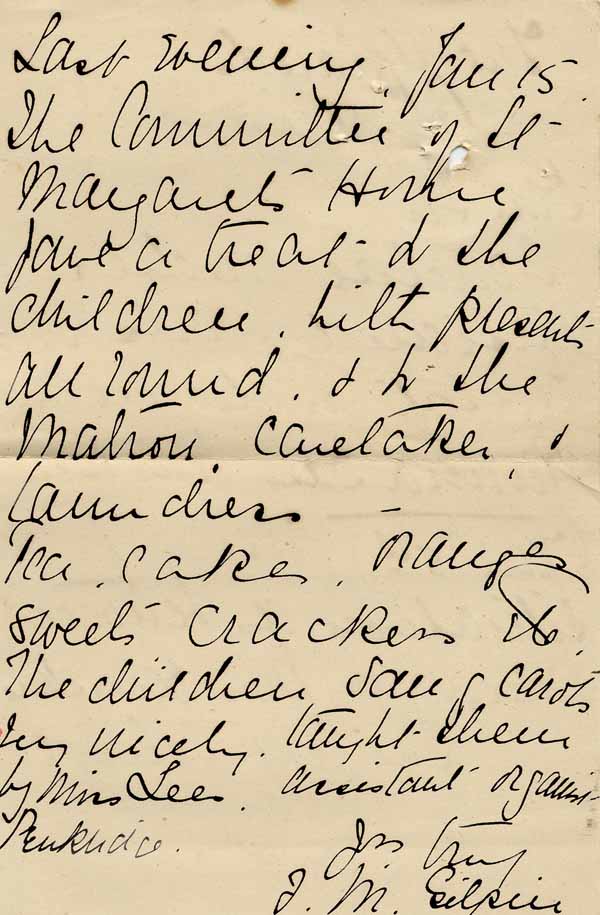 Last evening, Jan 15.
The Committee of St
Margarets Home
gave a treat to the
children, with presents
all round, & to the
Matron, caretaker, &
laundress
Tea, cakes, oranges
sweets crackers &c.
The children sang carols
very nicely, taught them
by Miss Lees, assistant organist
Penkridge.
Yrs truly
F. M. Gilpin